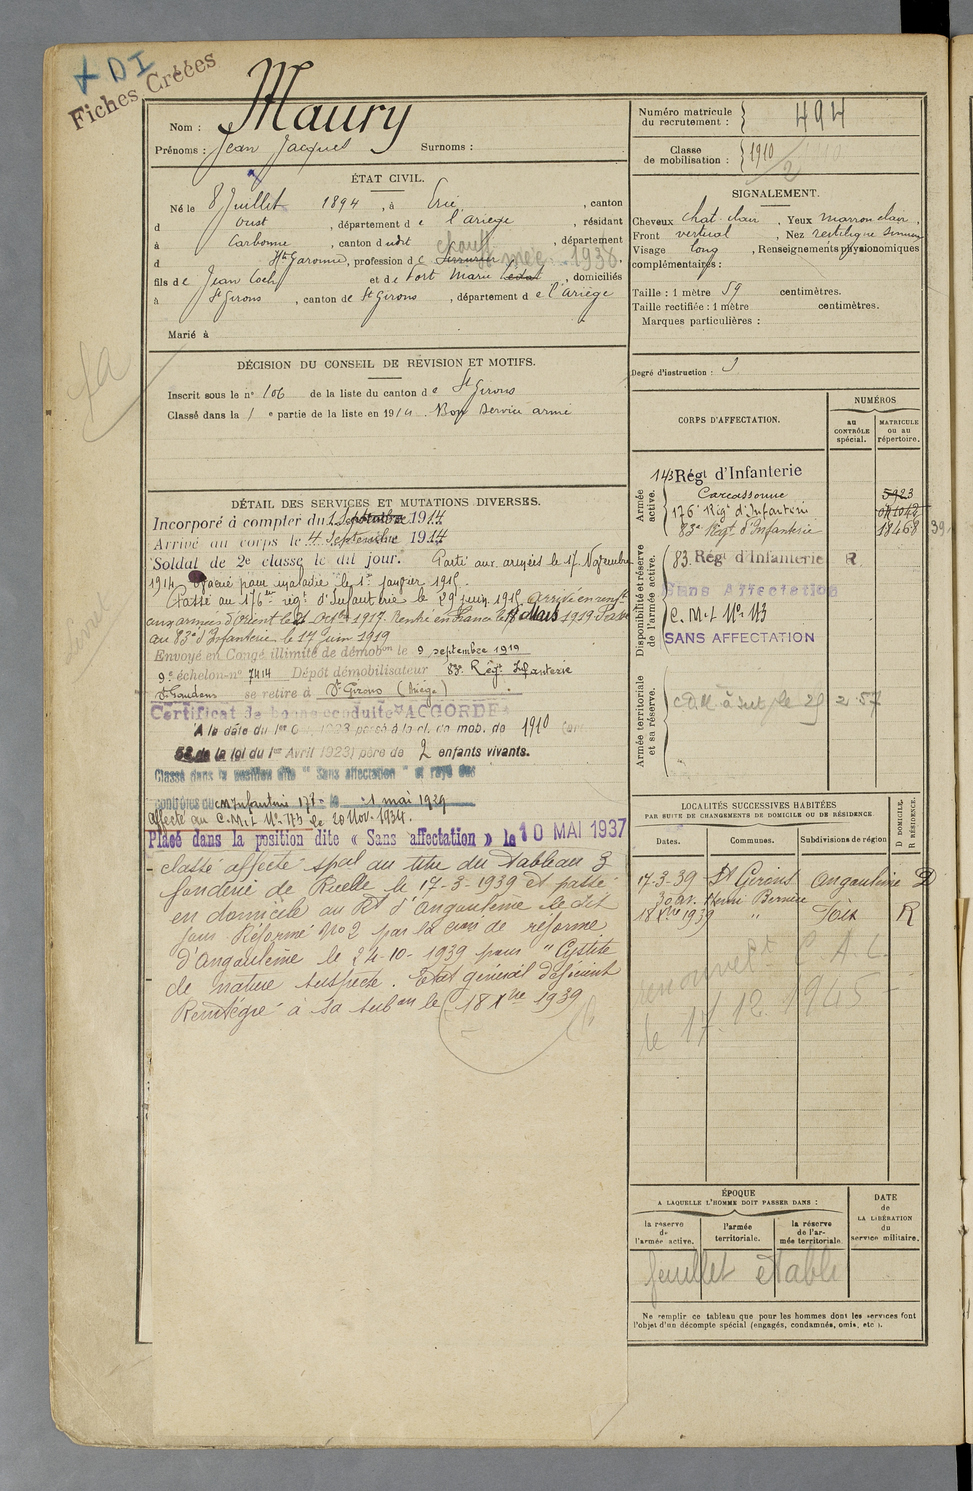 + D I
Fiches Créées
Nom : Maury
Prénoms : Jean Jacques Surnoms :
ÉTAT CIVIL.
Né le 8 Juillet 1894, à Ercé, canton
d Oust, département de l'Ariège, résidant
à Carbonne, canton dudit, département
d Hte Garonne, profession de Serrurier chauff 1938,
fils de Jean et de Fort Marie, domiciliés
à St Girons, canton de St Girons, département de l'Ariège
Marié à
DÉCISION DU CONSEIL DE RÉVISION ET MOTIFS.
Inscrit sous le n° 106 de la liste du canton de St Girons
Classé dans la 1 e partie de la liste en 1914. Bon service armé
DÉTAIL DES SERVICES ET MUTATIONS DIVERSES.
Incorporé à compter du Septembre 1914
Arrivé au corps le 4 Septembre 1914
Soldat de 2e classe le dit jour. Parti aux armées le 17 Novembre
1914 Evacué pour maladie le 1er Janvier 1915.
Passé au 176e rég. d'Infanterie le 29 juin 1915. arrivé en renft
aux armées d'Orient le 21 Octbre 1917. Rentré en France le 18 Mars 1919 Passé
au 83e d'Infanterie le 17 juin 1919
Envoyé en Congé illimité de démobon le 9 septembre 1919
9e échelon n° 7414 Dépôt démobilisateur 83e Régt Infanterie
St Gaudens se retire à St Girons (Ariège)
Certificat de bonne conduite "ACCORDÉ"
A la date du 1er 1923 passé à la cl. de mob. de 1910
58 de la loi du 1er Avril 1923) père de 2 enfants vivants.
Classé dans la position dite "Sans affectation" et rayé des
contrôles du Infanterie 173e le 1 mai 1929
Affecté au C.M.I. N° 173 le 20 Nov. 1934.
Placé dans la position dite « Sans affectation » le 10 MAI 1937
classé affecté spal au titre du Tableau 3
fonderie de Ruelle le 17-3-1939 et passé
en domicile au Rt d'Angoulême le dit
jour. Réformé N° 2 par la Cion de réforme
d'Angoulême le 24-10-1939 pour "Cystite
de nature suspecte. Etat général déficient
Réintégré à sa subon le 18 Xbre 1939
Numéro matricule du recrutement : 494
Classe de mobilisation : 1910
2
SIGNALEMENT.
Cheveux chat. clair, Yeux marron clair,
Front vertical, Nez rectiligne sinueux
Visage long, Renseignements physionomiques
complémentaires :
Taille : 1 mètre 59 centimètres.
Taille rectifiée : 1 mètre centimètres.
Marques particulières :
Degré d'instruction : 3
CORPS D'AFFECTATION.
NUMÉROS
au CONTRÔLE spécial.
MATRICULE ou au répertoire.
Armée active.
143 Régt d'Infanterie
Carcassonne 5923
176e Régt d'Infanterie
83e Régt d'Infanterie 18468
Disponibilité et réserve de l'armée active.
83. Régt d'Infanterie R
Sans Affectation
C. M. I. N° 173
SANS AFFECTATION
Armée territoriale et sa réserve.
LOCALITÉS SUCCESSIVES HABITÉES
PAR SUITE DE CHANGEMENTS DE DOMICILE OU DE RÉSIDENCE
Dates. Communes. Subdivisions de région
D DOMICILE. R RÉSIDENCE.
17-3-39 St Girons Angoulême D
30 av. Henri Bernère
18 Xbre 1939 " Foix R
renouvelt C A C.
le 17. 12. 1945
ÉPOQUE
A LAQUELLE L'HOMME DOIT PASSER DANS :
la réserve de l'armée active.
l'armée territoriale.
la réserve de l'armée territoriale.
DATE de LA LIBÉRATION du service militaire.
feuillet établi
Ne remplir ce tableau que pour les hommes dont les services font
l'objet d'un décompte spécial (engagés, condamnés, omis, etc.).